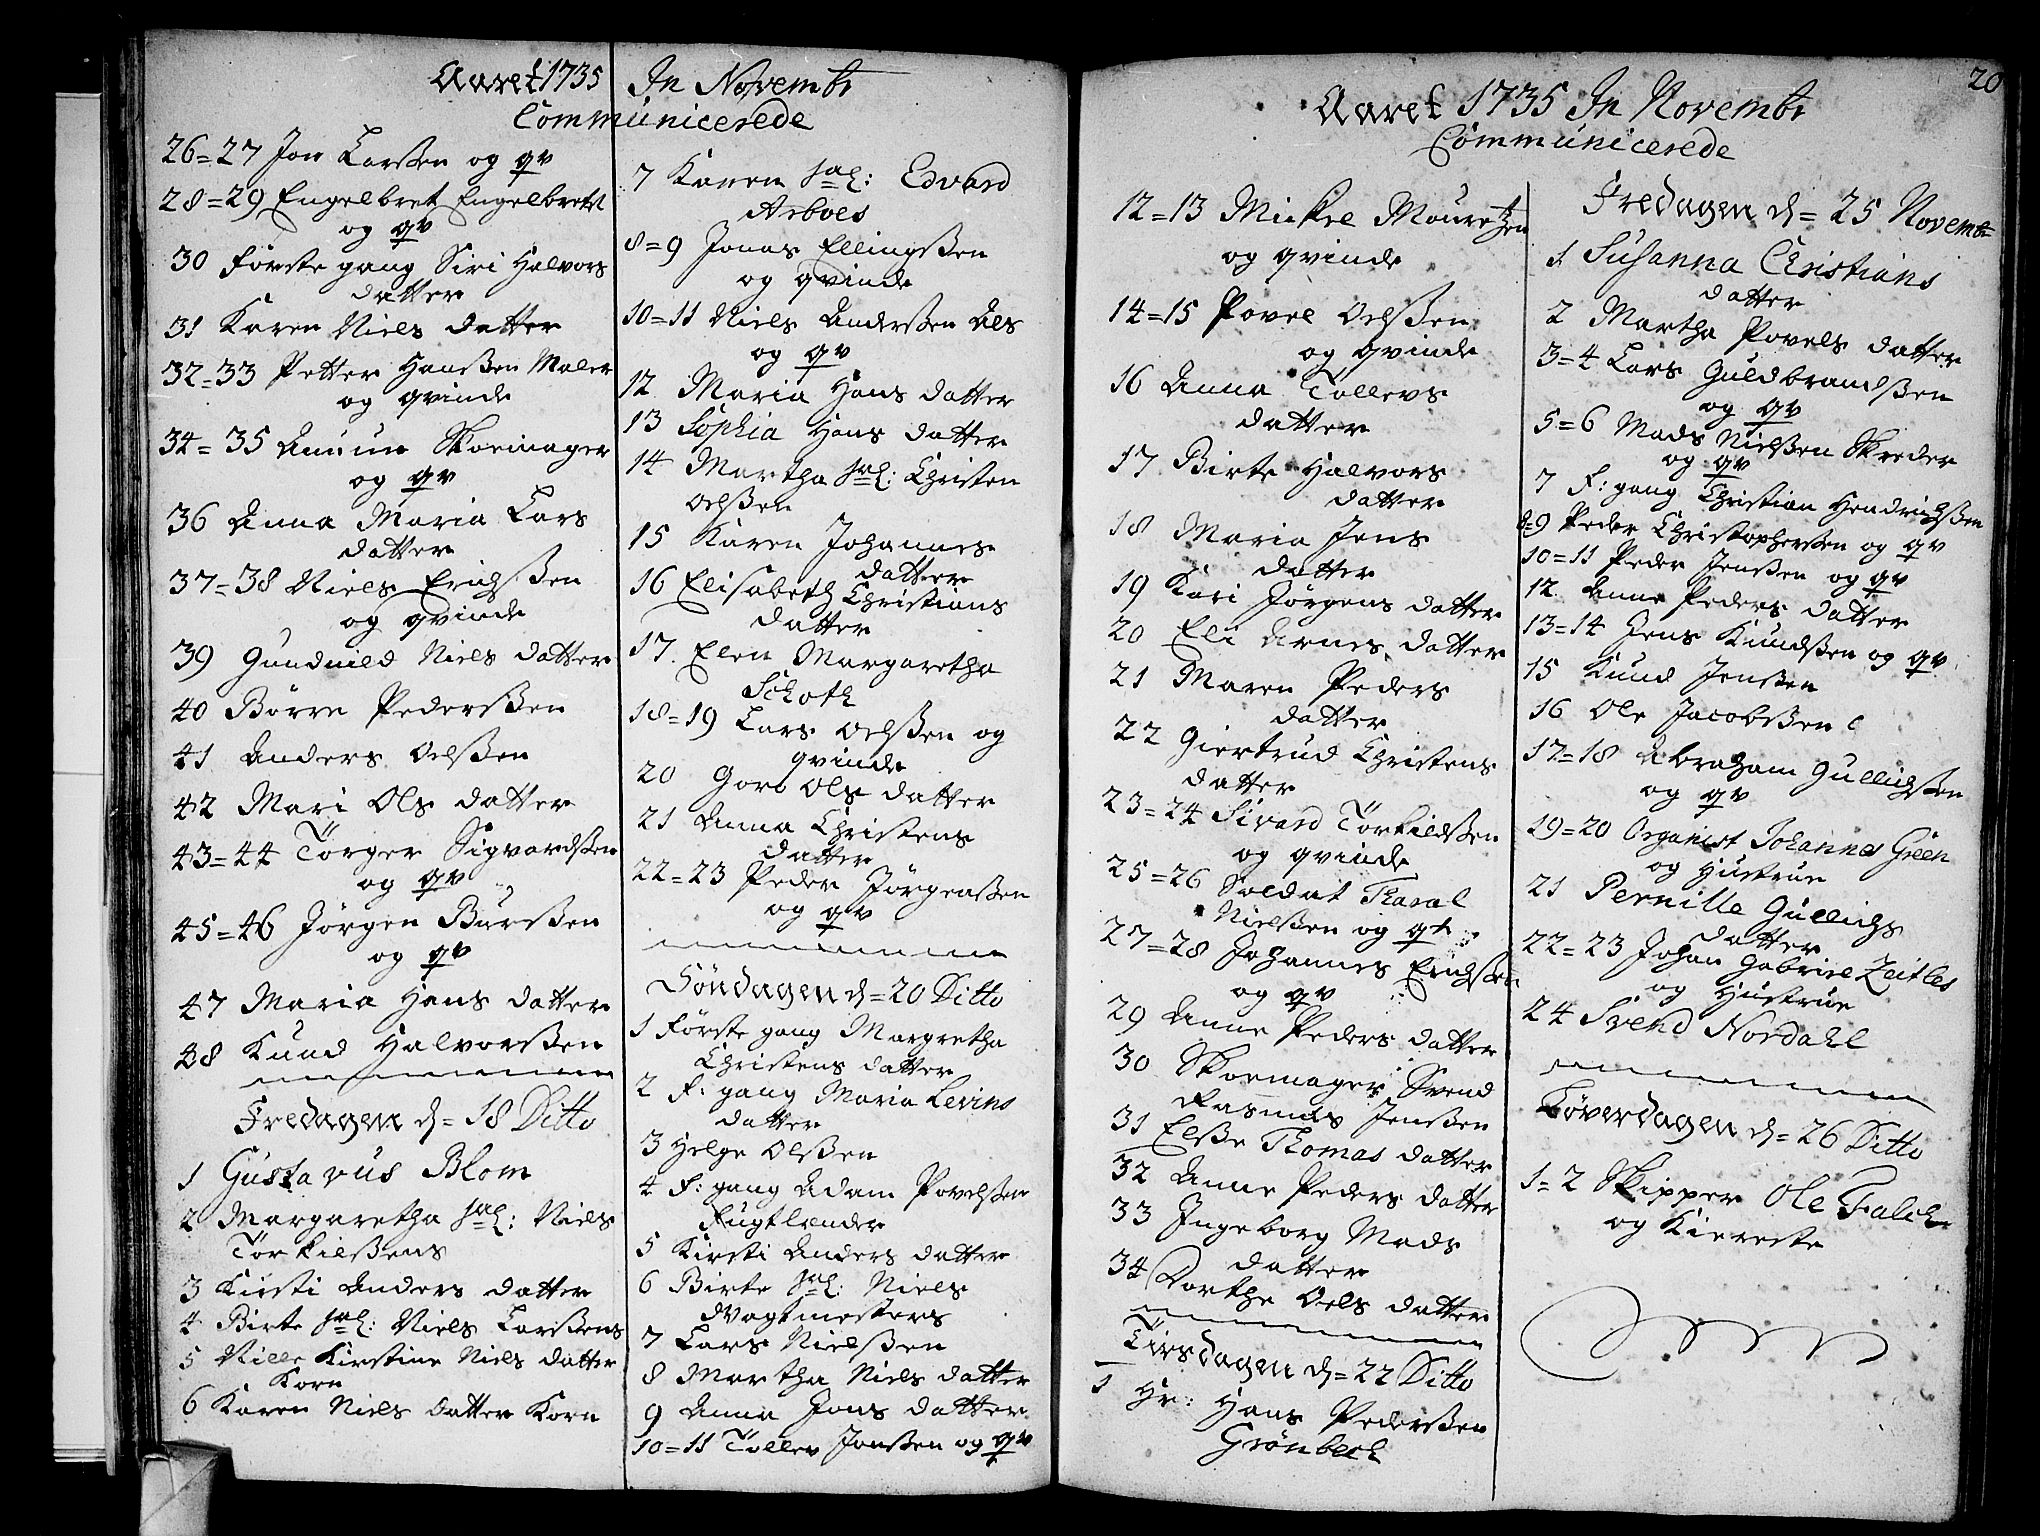 Aaret 1735 In Novembr
Communicerede
26=27 Jon Larßen og qv
28=29 Engelbret Engelbretst
og qv
30 Første gang Siri Halvors
datter
31 Karen Niels datter
32=33 Petter Hanßen Maler
og qvinde
34=35 Amun Skoemager
og qv
36 Anna Maria Lars
datter
37=38 Niels Erichßen
og qvinde
39 Gundnild Niels datter
40 Børre Pederßen
41 Anders Oelßen
42 Mari Ols datter
43=44 Törger Sigvardßen
og qv
45=46 Jörgen Burßen
og qv
47 Maria Hans datter
48 Knud Halvorßen
Fredagen d= 18 Ditto
1 Gustavus Blom
2 Margaretha Sal: Niels
Törkilßens
3 Kirsti Anders datter
4 Birte Sal: Niels Larßens
5 Nille Kirstine Niels datter
Korn
6 Karen Niels datter Korn
7 Karen Sal: Edvard
Arboes
8=9 Jonas Ellingßen
og qvinde
10=11 Niels Anderßen Als
og qv
12 Maria Hans datter
13 Sophia Hans datter
14 Martha Sal: Christen
Oelßen
15 Karen Johannes
datter
16 Elisabeth Christians
datter
17. Elen Margaretha
Schoth
18=19 Lars Oelßen og
qvinde
20 Goro Ols datter
21 Anna Christens
datter
22=23 Peder Jörgenßen
og qv
Söndagen d=20 Ditto
1 Förste gang Margretha
Christens datter
2 F: gang Maria Levins
datter
3 Helge Olßen
4 F: gang Adam Povelßen
Fugtlender
5 Kirsti Anders datter
6 Birte Sal: Niels
Vagtmesters
7 Lars Nielßen
8 Martha Niels datter
9 Anna Jons datter
10=11 Tollev Jonßen og qv
20
Aaret 1735 In Novembr
Communicerede
12=13 Mickel Mouretzen
og qvinde
14=15 Povel Oelßen
og qvinde
16 Anna Tollevs
datter
17 Birte Halvors
datter
18 Maria Jens
datter
19 Kari Jörgens datter
20 Eli Arnes datter
21 Maren Peders
datter
22 Giertrud Christens
datter
23=24 Sivard Törkildßen
og qvinde
25=26 Soldat Tharal
Nielßen og qt
27=28 Johannes Erichßen
og qv
29 Anne Peders datter
30 Skoemager Svend
Rasmus Jenßen
31 Elße Thomas datter
32 Anne Peders datter
33 Ingeborg Mads
datter
34 Dorthe Oels datter
Tirsdagen d=22 Ditto
1 Hr: Hans Pederßen
Grönbech
Fredagen d= 25 Novembr
1 Susanna Christians
datter
2 Martha Povels datter
3=4 Lars Guldbrandßen
og qv
5=6 Mads Nielßen Skreder
og qv
7 F: gang Christian Hendrichßen
8=9 Peder Christopherßen og qv
10=11 Peder Jenßen og qv
12. Anne Peders datter
13=14 Jens Knudßen og qv
15 Knud Jenßen
16 Ole Jacobßen
17=18 Abraham Gullichßen
og qv
19=20 Organist Johannes Green
og Hustrue
21 Pernille Gullichs
datter
22=23 Johan Gabriel Zeitles
og Hustrue
24 Svend Nordahl
Löverdagen d=26 Ditto
1=2 Skipper Ole Falch
og Kiereste